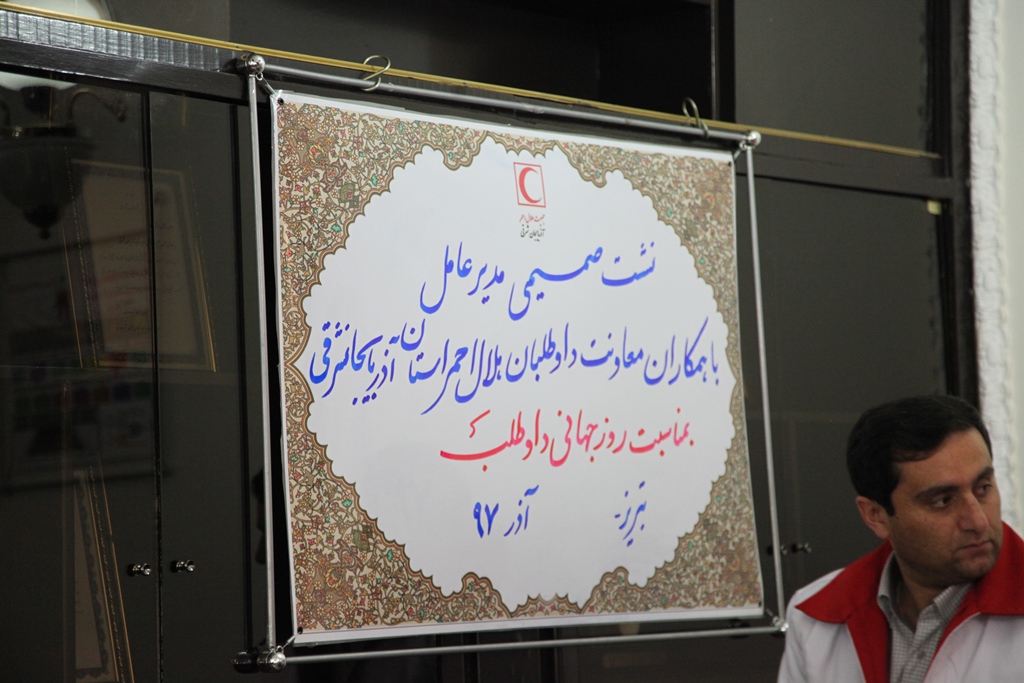 جمعیت هلال احمر
آذربایجان شرقی
نشست صمیمی مدیرعامل
با همکاران معاونت داوطلبان هلال احمر استان آذربایجانشرقی
بمناسبت روز جهانی داوطلب
تبریز - آذر ۹۷